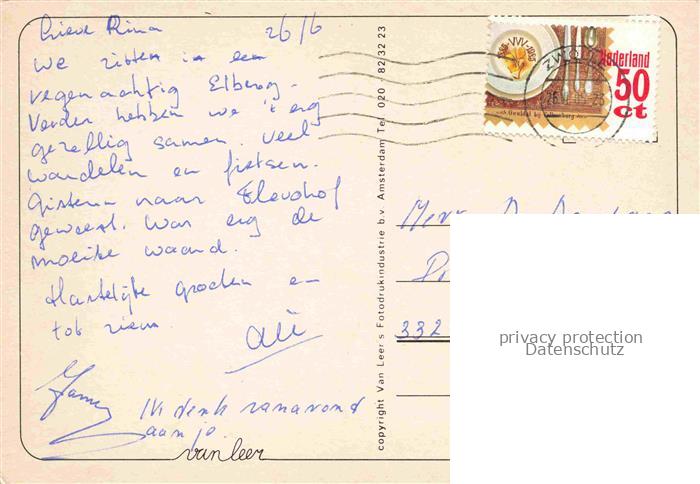 Lieve Rina 26/6
We zitten in een
regenachtig Elburg.
Verder hebben we 't erg
gezellig samen. Veel
wandelen en fietsen.
Gisteren naar Flevohof
geweest. Was erg de
moeite waard.
Hartelijke groeten en
tot ziens
Ali
Ik denk vanavond
aan je.
van leer
copyright Van Leer's Fotodrukindustrie b.v. Amsterdam Tel. 020 82 32 23
1885-VVV-1985
Nederland
50
ct
ZWOLLE
332
privacy protection
Datenschutz